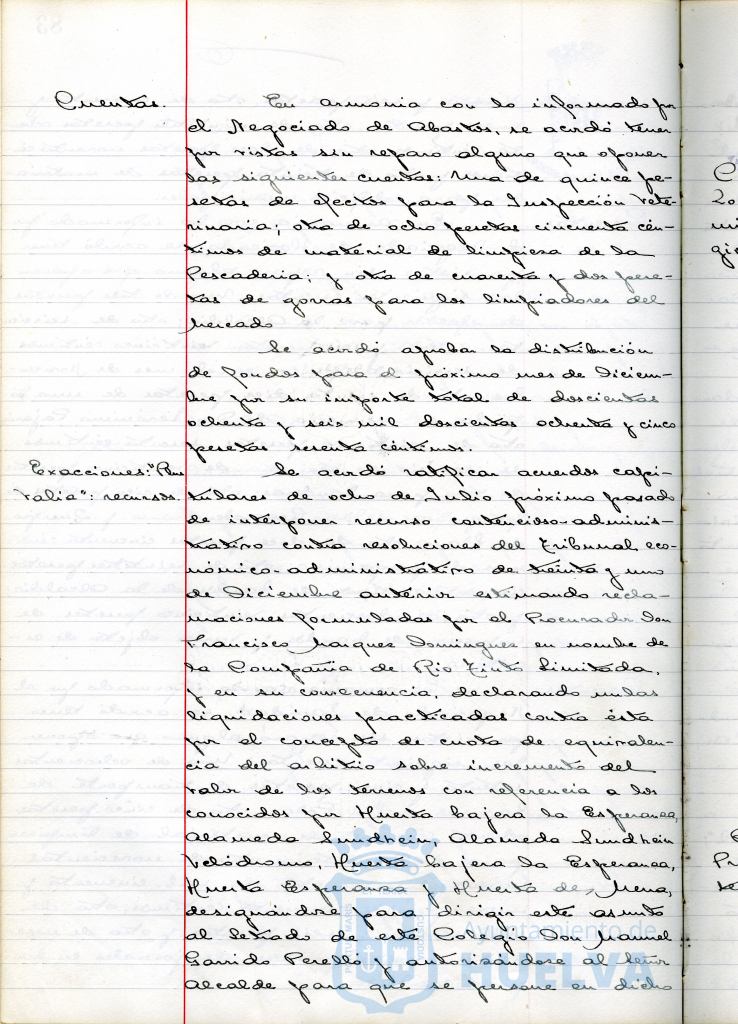 Cuentas. En armonia con lo informado por
el Negociado de Abastos, se acordó tener
por vistas sin reparo alguno que oponer
las siguientes cuentas: Una de quince pe-
setas de efectos para la Inspección Vete-
rinaria; otra de ocho pesetas cincuenta cén-
timos de material de limpieza de la
Pescaderia; y otra de cuarenta y dos pese-
tas de gorras para los limpiadores del
Mercado
Se acordó aprobar la distribución
de fondos para el próximo mes de Diciem-
bre por su importe total de doscientas
ochenta y seis mil doscientas ochenta y cinco
pesetas sesenta céntimos.
Exacciones: "Plus Se acordó ratificar acuerdos capi-
Valia": recursos. tulares de ocho de Julio próximo pasado
de interponer recurso contencioso-adminis-
trativo contra resoluciones del Tribunal eco-
nómico-administrativo de treinta y uno
de Diciembre anterior estimando recla-
maciones formuladas por el Procurador Don
Francisco Marquez Dominguez en nombre de
la Compañia de Rio Tinto Limitada,
y en su consecuencia, declarando nulas
liquidaciones practicadas contra ésta
por el concepto de cuota de equivalen-
cia del arbitrio sobre incremento del
valor de los terrenos con referencia a los
conocidos por Huerta bajera la Esperanza,
Alameda Sundhein, Alameda Sundhein
Velódromo, Huerta bajera la Esperanza,
Huerta Esperanza y Huerta de Mena,
designándose para dirigir este asunto
al Letrado de este Colegio Don Manuel
Garrido Perelló y autorizándose al Señor
Alcalde para que se persone en dicho
Ayuntamiento de
HUELVA